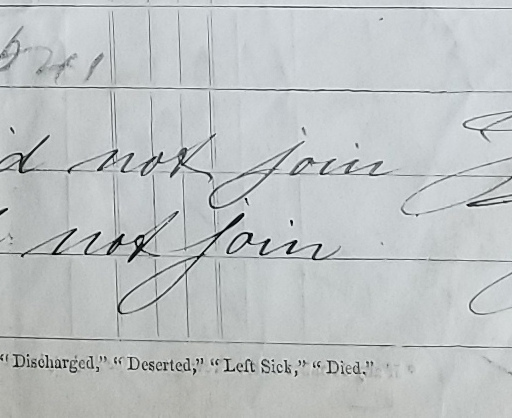 'd not join
not join
"Discharged," "Deserted," "Left Sick," "Died."